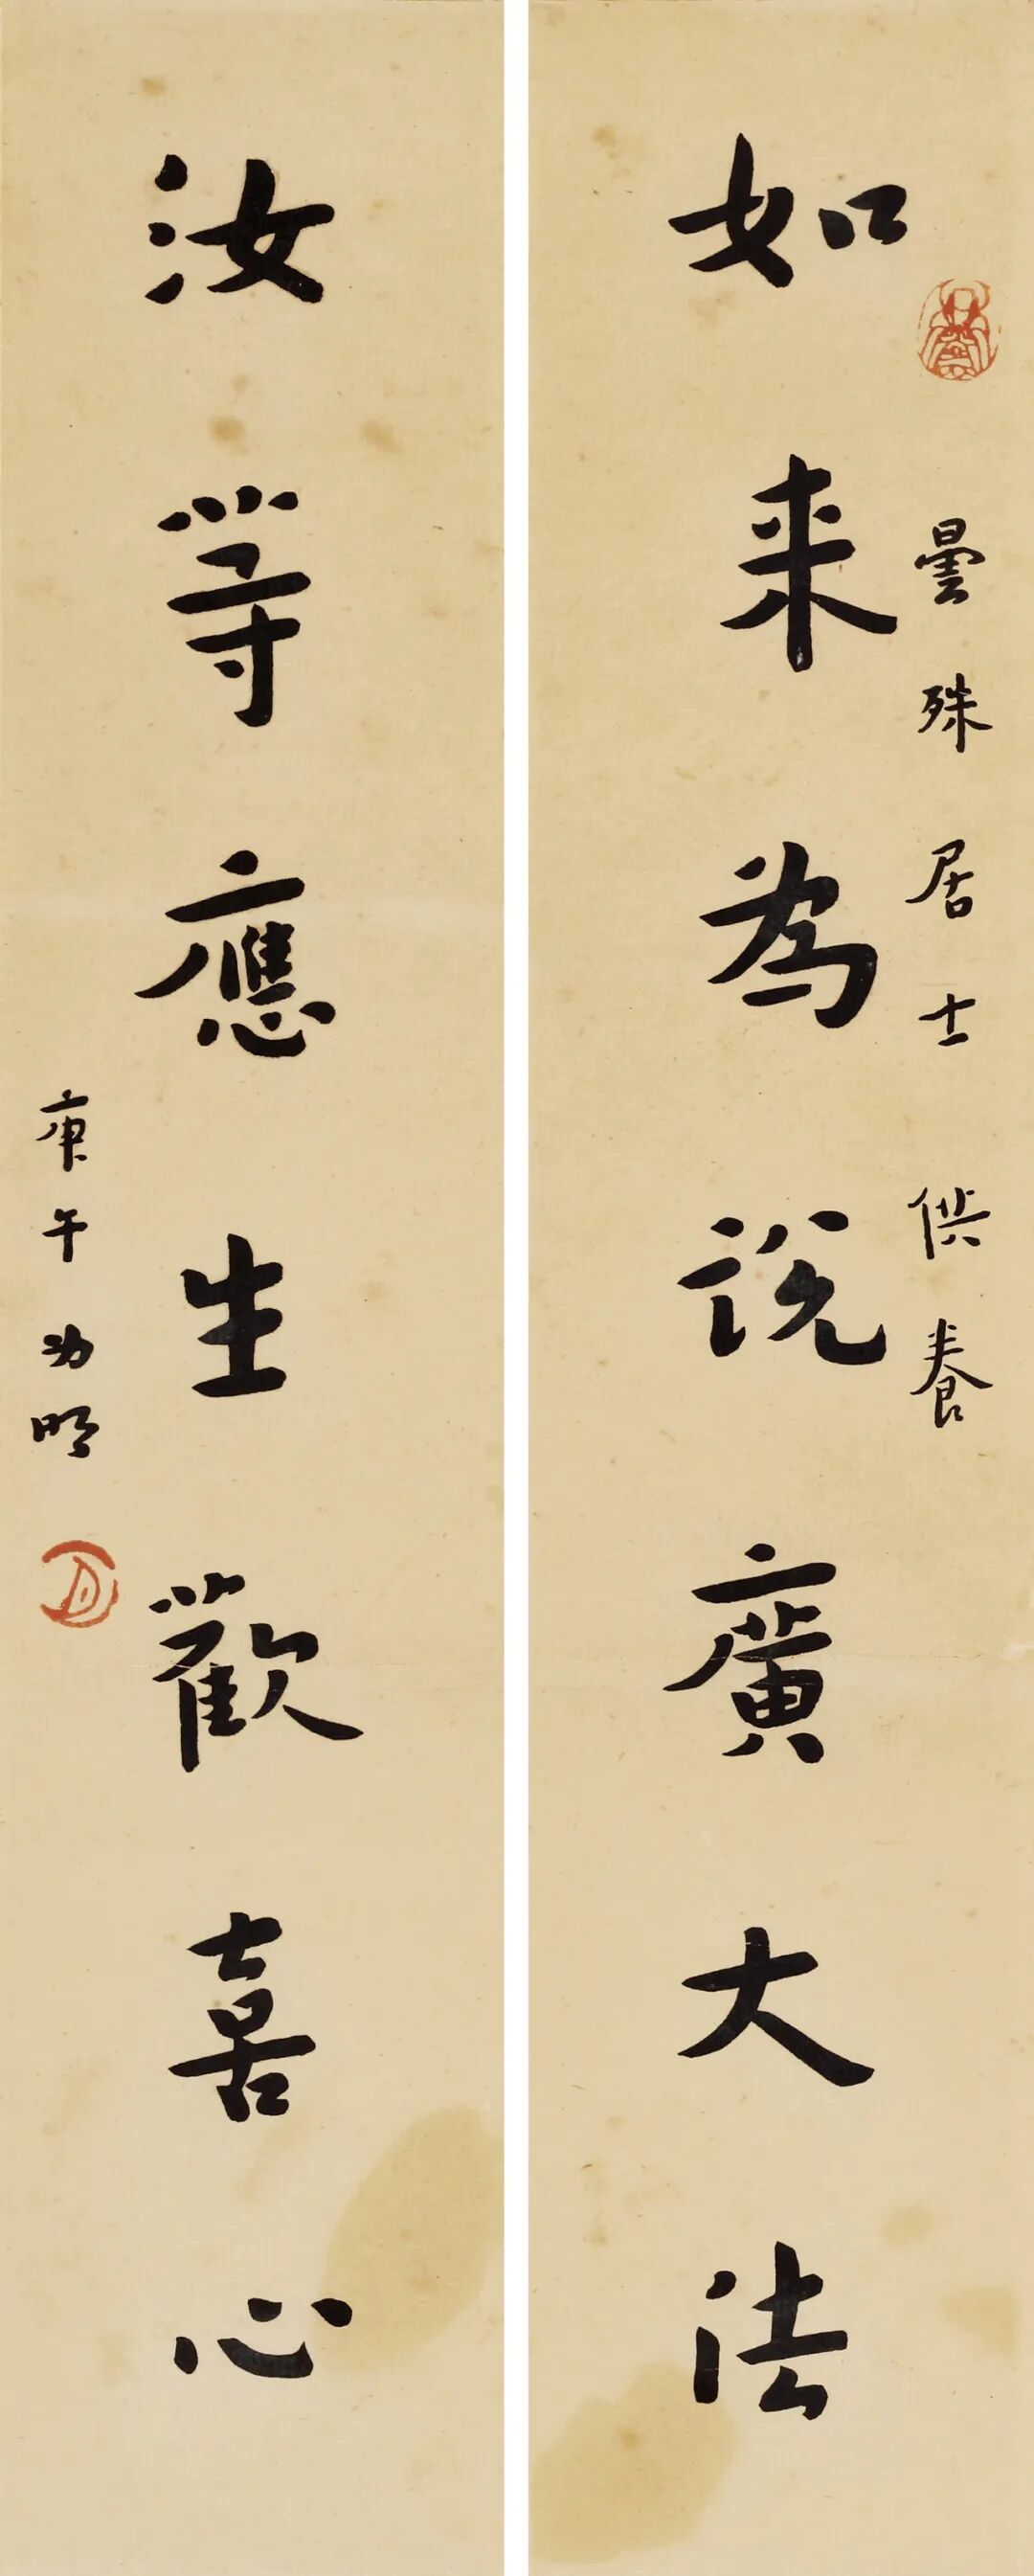 如来為説廣大法
曇殊居士 供養
汝等應生歡喜心
庚午 幼明